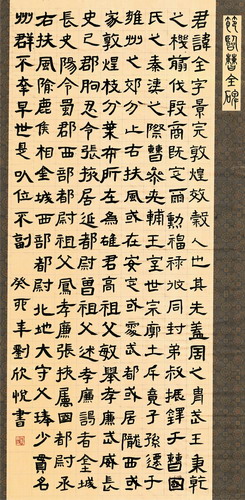 節臨曹全碑
君諱全字景完敦煌效穀人也其先蓋周之胄武王秉乾
之機翦伐殷商既定爾勳福祿攸同封弟叔振鐸于曹國
氏焉秦漢之際曹參夾輔王室世宗廓土斥竟子孫遷于
雍州之郊分止右扶風或在安定或處武都或居隴西或
家敦煌枝分葉布所在為雄君高祖父敏舉孝廉武威長
史巴郡朐忍令張掖居延都尉曾祖父述孝廉謁者金城
長史夏陽令蜀郡西部都尉祖父鳳孝廉張掖屬國都尉丞
右扶風隃麋侯相金城西部都尉北地大守父琫少貫名
州郡不幸早世是以位不副 癸巳年劉欣悅書